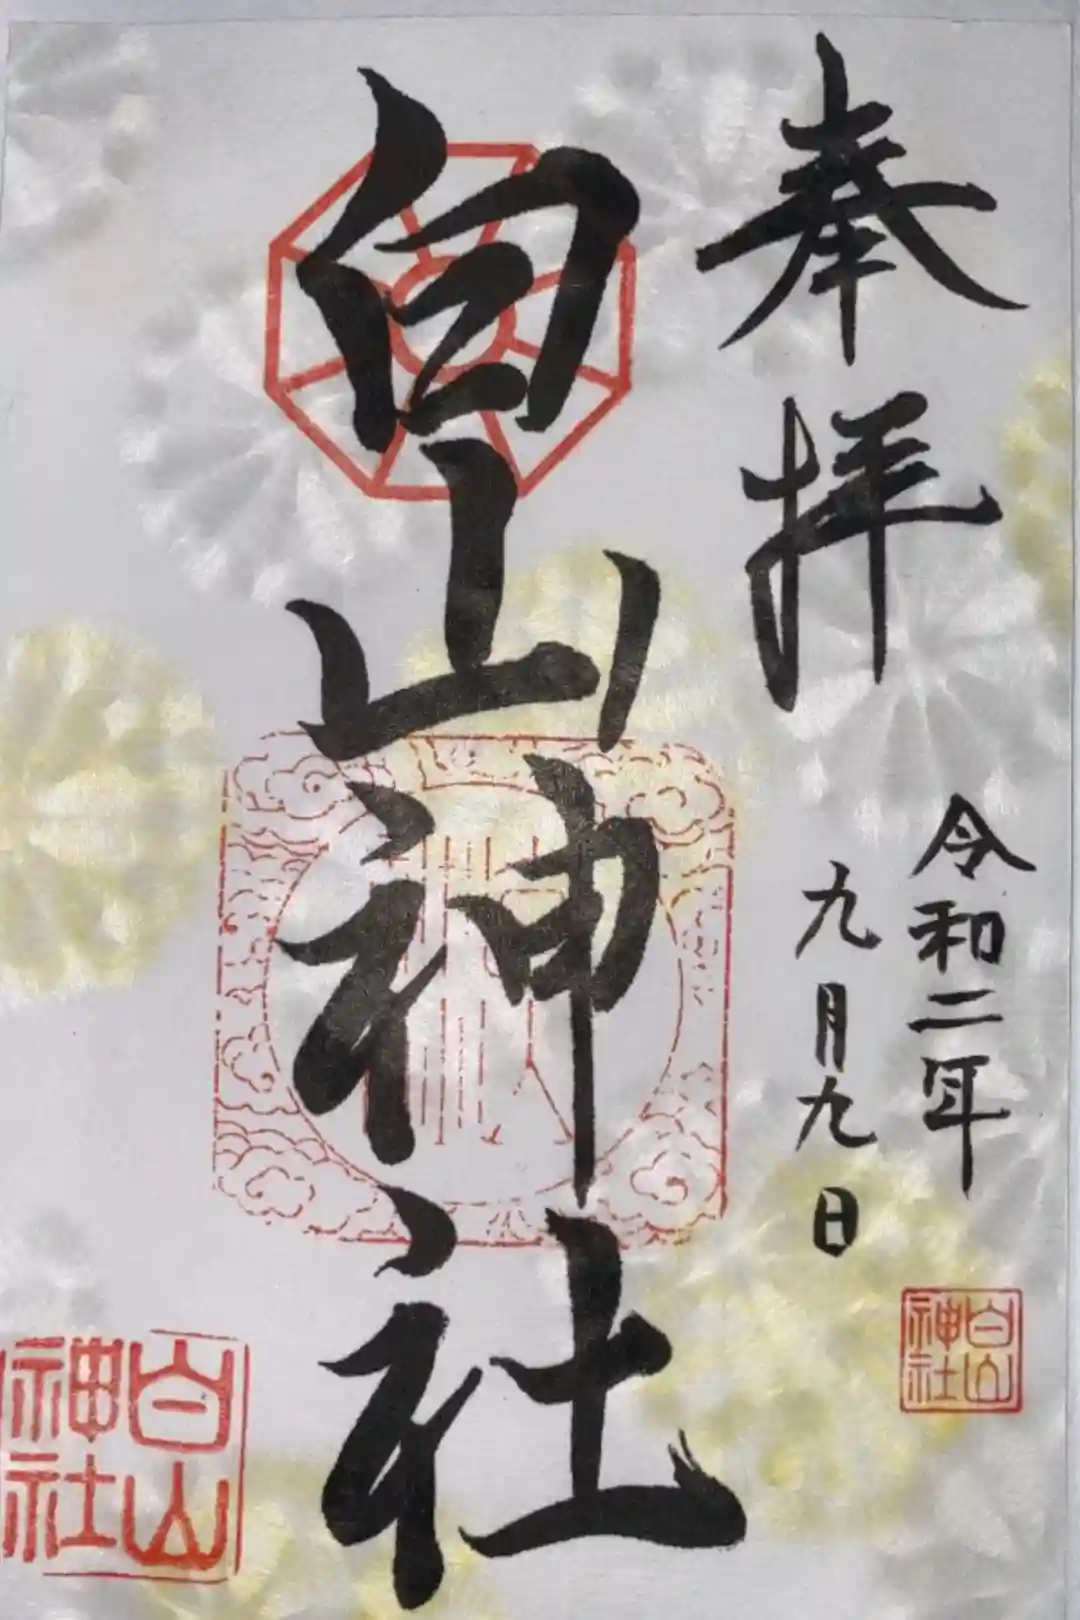 奉拝
令和二年
九月九日
白山神社
白山神社
白山神社